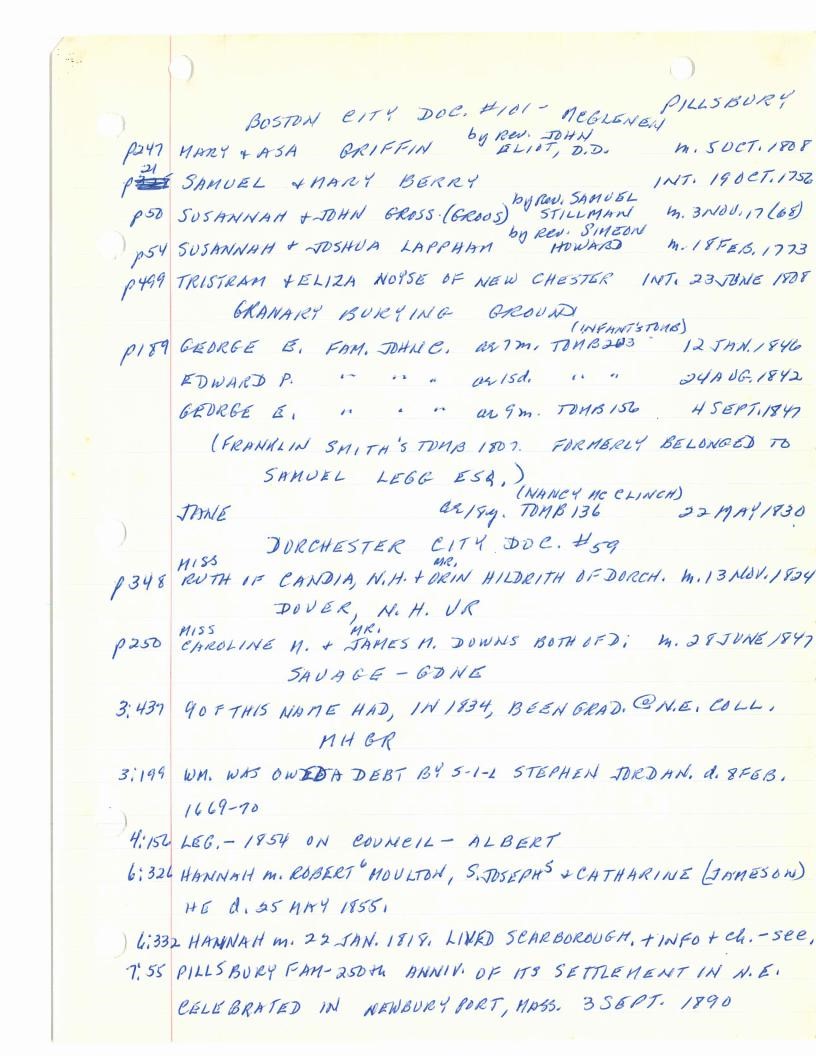 PILLSBURY
BOSTON CITY DOC. #101 - MCGLENEN
p247 MARY & ASA GRIFFIN by Rev. JOHN ELIOT, D.D. m. 5 OCT. 1808
p21 SAMUEL & MARY BERRY INT. 19 OCT. 1756
p50 SUSANNAH & JOHN GROSS (GROOS) by Rev. SAMUEL STILLMAN m. 3 NOV. 17(68)
p54 SUSANNAH & JOSHUA LAPPHAM by Rev. SIMEON HOWARD m. 18 FEB. 1773
p499 TRISTRAM & ELIZA NOYSE OF NEW CHESTER INT. 23 JUNE 1808
GRANARY BURYING GROUND
(INFANT'S TOMB)
p189 GEORGE E. FAM. JOHN C. ae 7 m. TOMB 203 12 JAN. 1846
EDWARD P. " " " ae 15d. " " 24 AUG. 1842
GEORGE E. " " " ae 9 m. TOMB 156 4 SEPT. 1847
(FRANKLIN SMITH'S TOMB 1807. FORMERLY BELONGED TO
SAMUEL LEGG ESQ.)
(NANCY MC CLINCH)
JANE ae 18y. TOMB 136 22 MAY 1830
DORCHESTER CITY DOC. #59
MISS MR.
p348 RUTH OF CANDIA, N.H. & ORIN HILDRITH OF DORCH. m. 13 NOV. 1824
DOVER, N.H. VR
MISS MR.
p250 CAROLINE M. & JAMES M. DOWNS BOTH OF D; m. 28 JUNE 1847
SAVAGE - GDNE
3:437 9 OF THIS NAME HAD, IN 1834, BEEN GRAD. @ N.E. COLL.
MHGR
3:199 WM. WAS OWED A DEBT BY S-I-L STEPHEN JORDAN. d. 8 FEB.
1669-70
4:156 LEG. - 1854 ON COUNCIL - ALBERT
6:326 HANNAH m. ROBERT⁶ MOULTON, S. JOSEPH⁵ & CATHARINE (JAMESON)
HE d. 25 MAY 1855.
6:332 HANNAH m. 22 JAN. 1818. LIVED SCARBOROUGH. + INFO + ch. - see.
7:55 PILLSBURY FAM - 250th ANNIV. OF ITS SETTLEMENT IN N.E.
CELEBRATED IN NEWBURYPORT, MASS. 3 SEPT. 1890